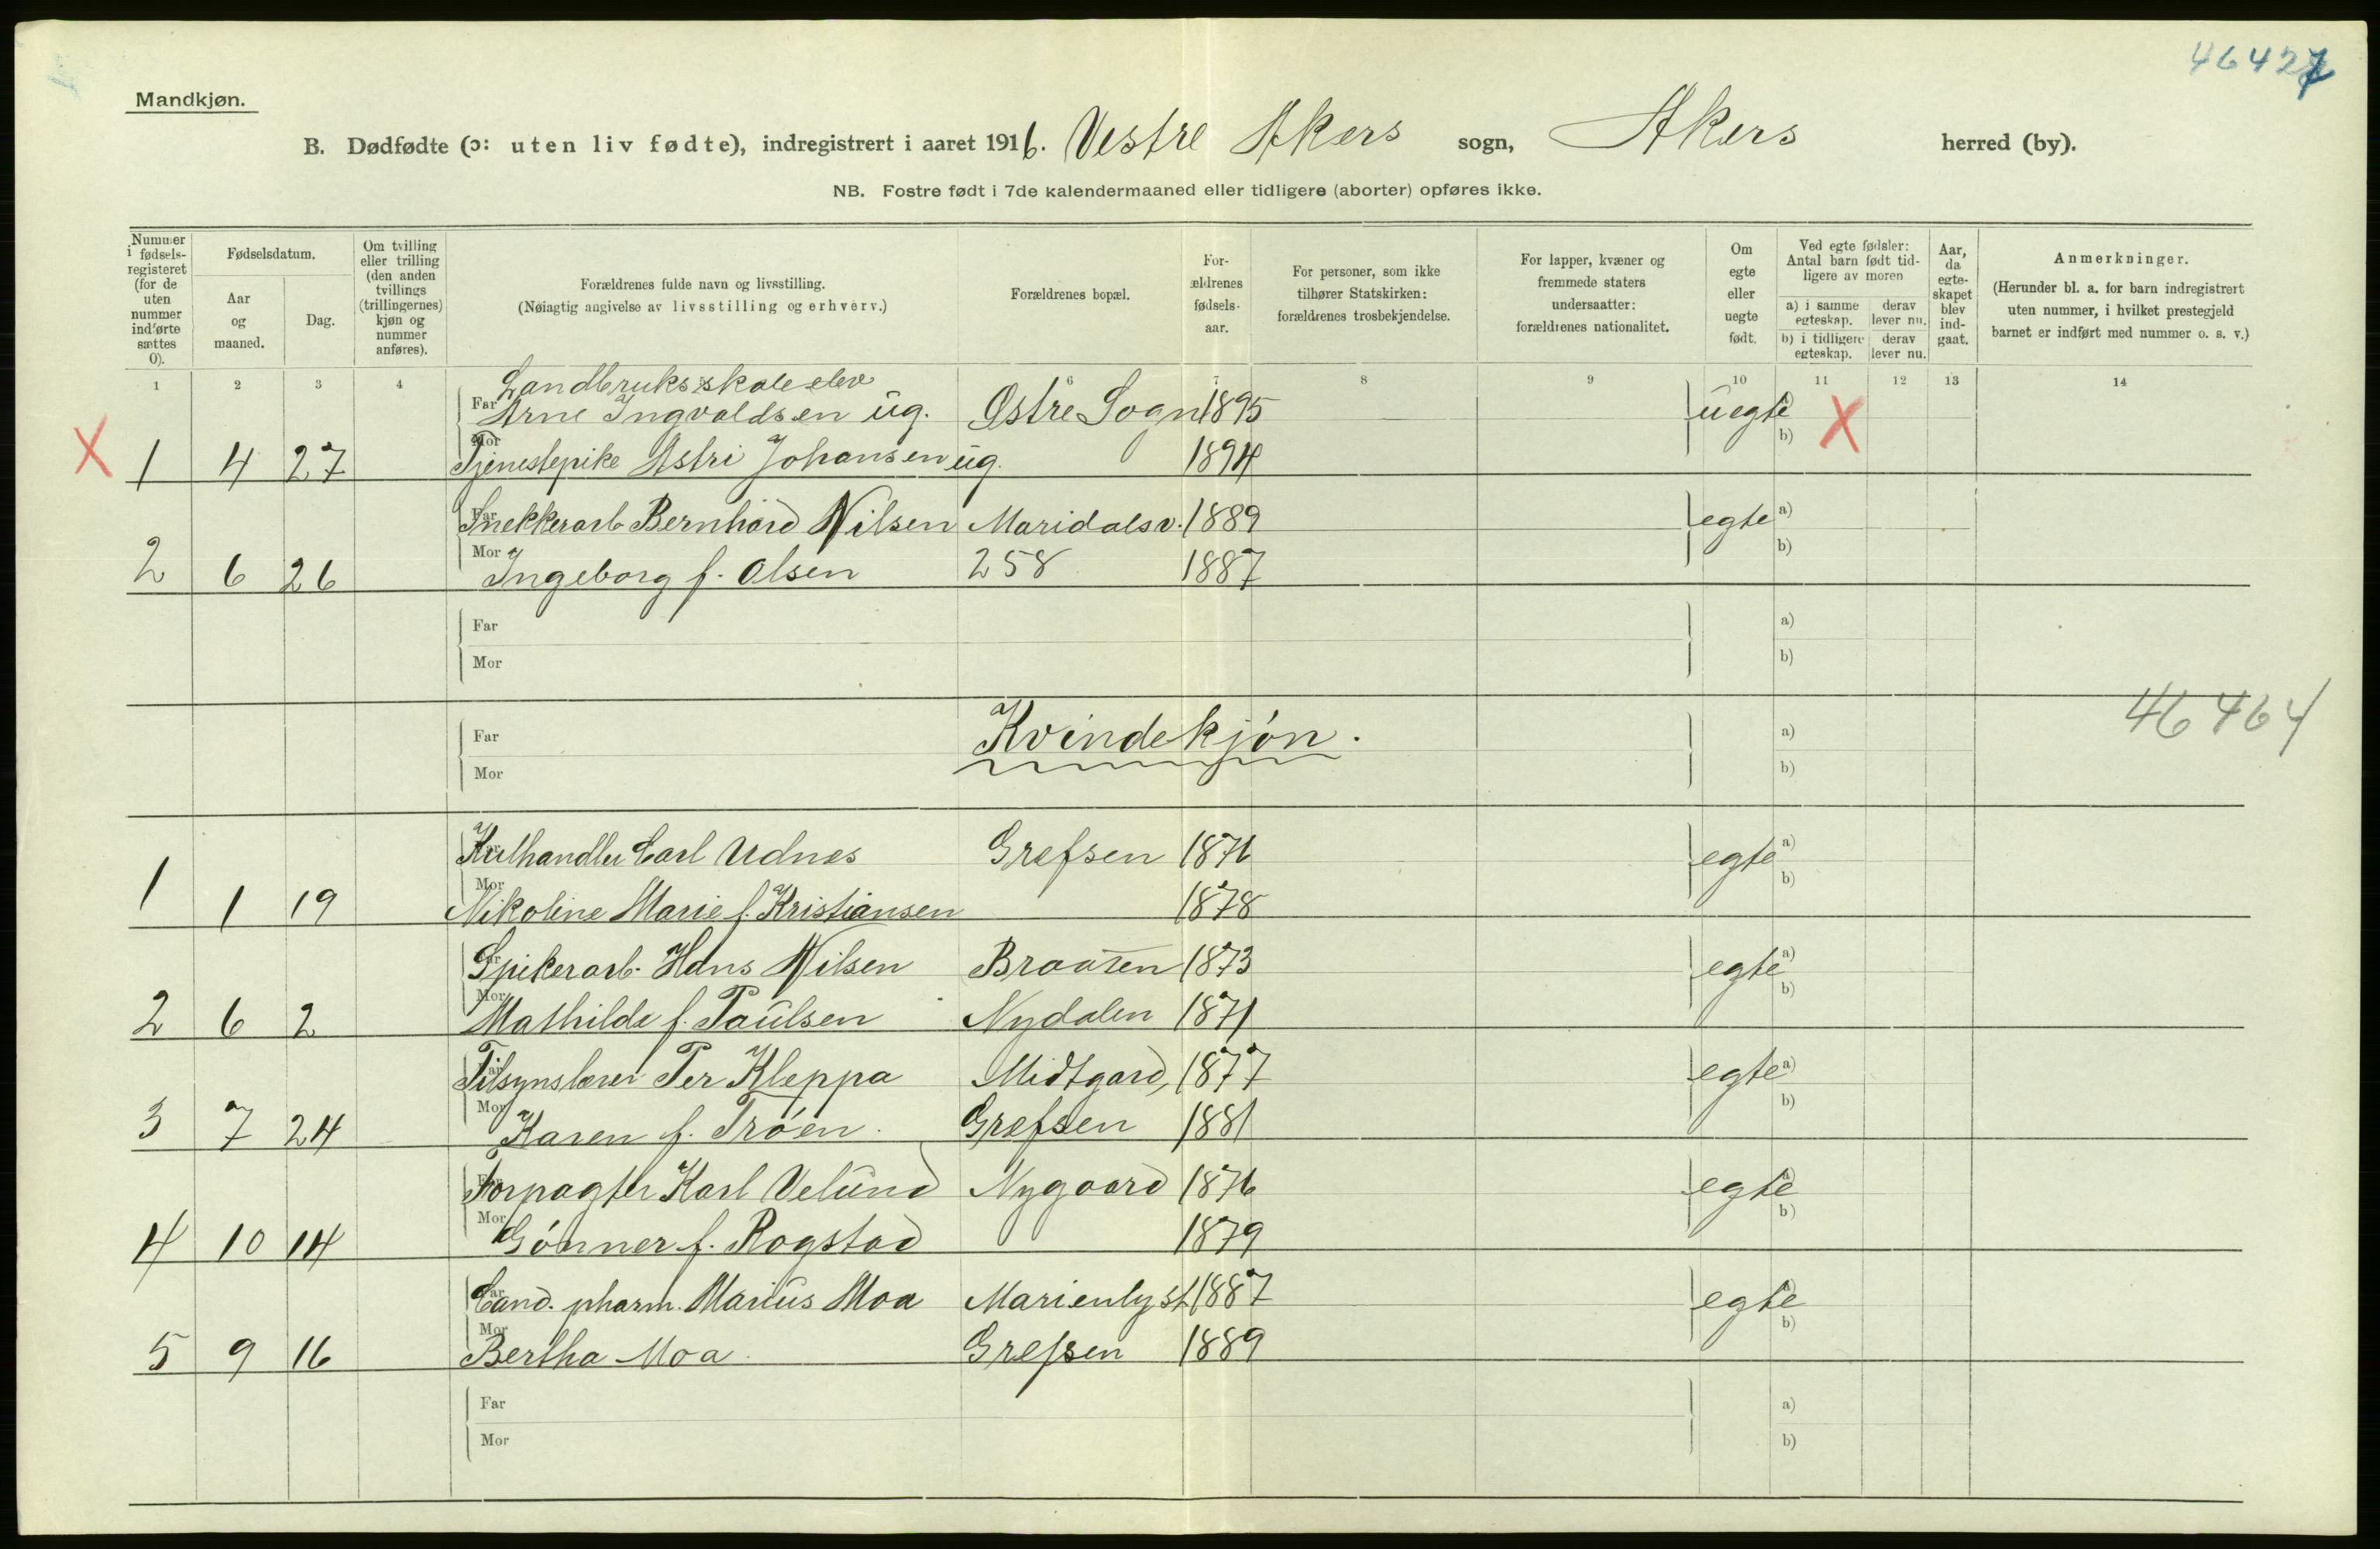 46427
Mandkjøn.
B. Dødfødte (ɔ: uten liv fødte), indregistrert i aaret 1916. Vestre Akers sogn, Akers herred (by).
NB. Fostre født i 7de kalendermaaned eller tidligere (aborter) opføres ikke.
Nummer i fødsels-registeret (for de uten nummer indførte sættes 0).
Fødselsdatum.
Aar og maaned.
Dag.
Om tvilling eller trilling (den anden tvillings (trillingernes) kjøn og nummer anføres).
Forældrenes fulde navn og livsstilling.
(Nøiagtig angivelse av livsstilling og erhverv.)
Forældrenes bopæl.
For-ældrenes fødsels-aar.
For personer, som ikke tilhører Statskirken: forældrenes trosbekjendelse.
For lapper, kvæner og fremmede staters undersaatter: forældrenes nationalitet.
Om egte eller uegte født.
Ved egte fødsler: Antal barn født tid-ligere av moren
a) i samme egteskap. derav lever nu.
b) i tidligere egteskap. derav lever nu.
Aar, da egte-skapet blev ind-gaat.
Anmerkninger.
(Herunder bl. a. for barn indregistrert uten nummer, i hvilket prestegjeld barnet er indført med nummer o. s. v.)
1 2 3 4 6 7 8 9 10 11 12 13 14
Landbruksskoleelev
Far Arne Ingvaldsen ug. Østre Sogn 1895 uegte
X 1 4 27 Mor Tjenestepike Astri Johansen ug. 1894 b) X
Far Snekkerarb Bernhard Nilsen Maridalsv. 1889 egte a)
2 6 26 Mor Ingeborg f. Olsen 258 1887 b)
Far a)
Mor b)
46464
Far Kvindekjøn. a)
Mor b)
Kulhandler Carl Udnes Grefsen 1876 egte a)
1 1 19 Mor Nikoline Marie f. Kristiansen 1878 b)
Spikerarb. Hans Nilsen Braaten 1873 egte a)
2 6 2 Mor Mathilde f. Paulsen Nydalen 1871 b)
Tilsynslærer Per Kleppa Midtgard, 1877 egte a)
3 7 24 Mor Karen f. Trøen. Grefsen 1881 b)
Forpagter Karl Velund Nygaard 1876 egte
4 10 14 Mor Gønner f. Rogstad 1879 b)
Cand. pharm. Marius Moa Marienlyst 1887 egte
5 9 16 Mor Bertha Moa. Grefsen 1889 b)
Far a)
Mor b)